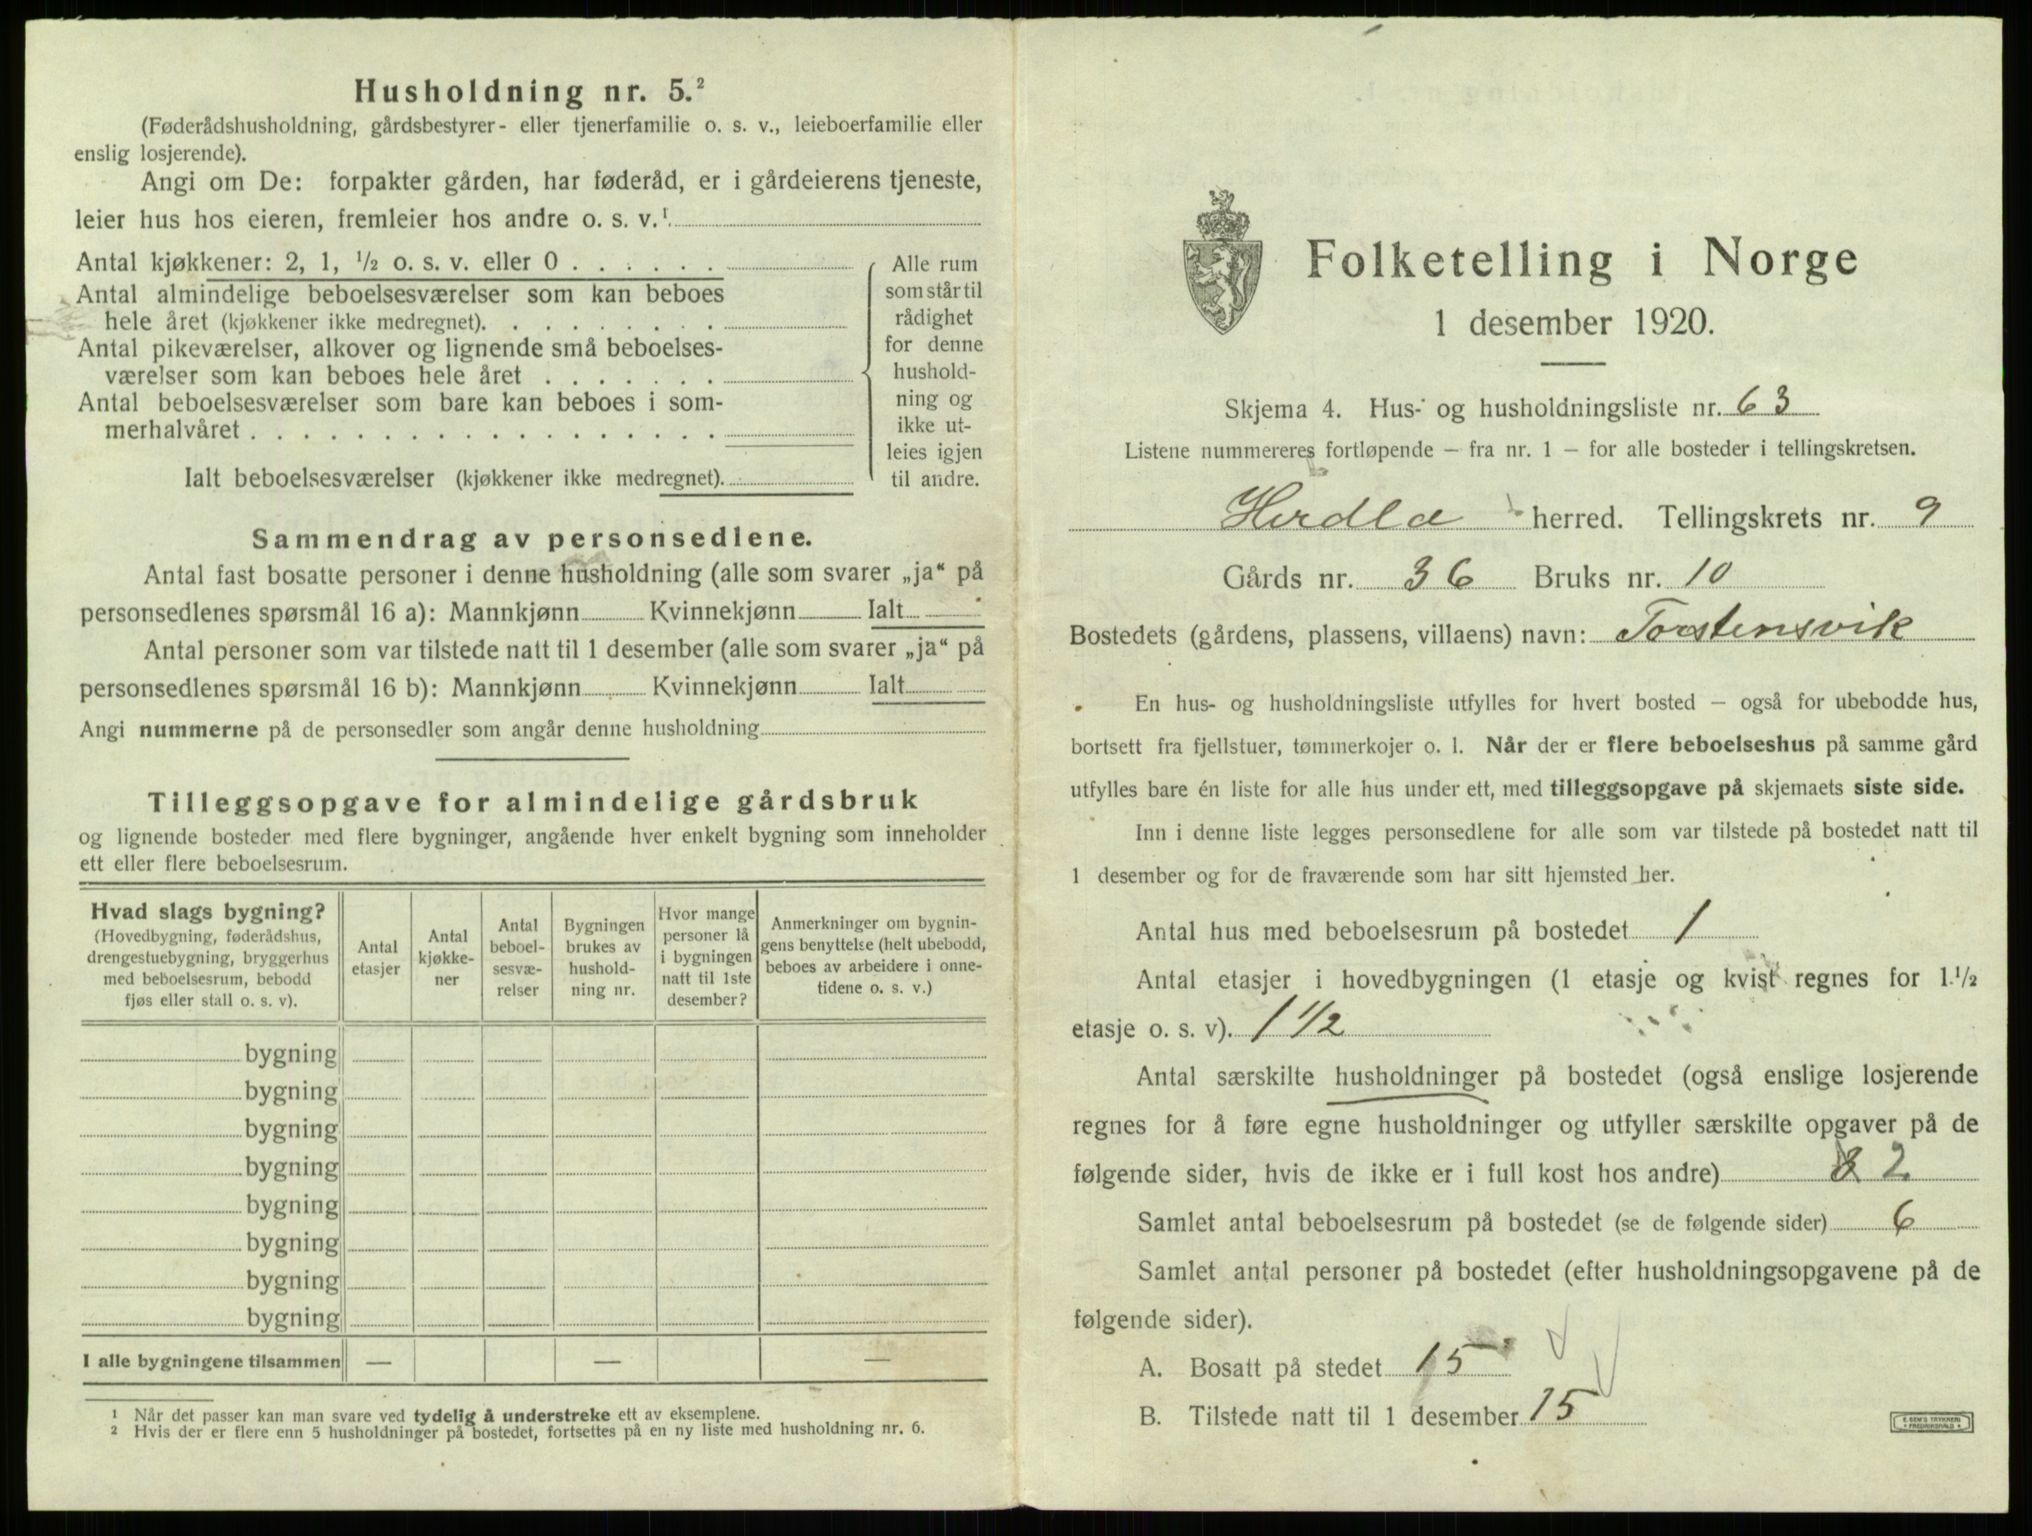 Husholdning nr. 5.²
(Føderådshusholdning, gårdsbestyrer- eller tjenerfamilie o. s. v., leieboerfamilie eller
enslig losjerende).
Angi om De: forpakter gården, har føderåd, er i gårdeierens tjeneste,
leier hus hos eieren, fremleier hos andre o. s. v.¹
Antal kjøkkener: 2, 1, ½ o. s. v. eller 0 . . . . . .
Antal almindelige beboelsesværelser som kan beboes
hele året (kjøkkener ikke medregnet). . . . . . . . .
Antal pikeværelser, alkover og lignende små beboelses-
værelser som kan beboes hele året . . . . . . .
Antal beboelsesværelser som bare kan beboes i som-
merhalvåret . . . . . . . . . . . . . . . . . .
Ialt beboelsesværelser (kjøkkener ikke medregnet).
Alle rum
som står til
rådighet
for denne
hushold-
ning og
ikke ut-
leies igjen
til andre.
Sammendrag av personsedlene.
Antal fast bosatte personer i denne husholdning (alle som svarer „ja“ på
personsedlenes spørsmål 16 a): Mannkjønn Kvinnekjønn Ialt
Antal personer som var tilstede natt til 1 desember (alle som svarer „ja“ på
personsedlenes spørsmål 16 b): Mannkjønn Kvinnekjønn Ialt
Angi nummerne på de personsedler som angår denne husholdning
Tilleggsopgave for almindelige gårdsbruk
og lignende bosteder med flere bygninger, angående hver enkelt bygning som inneholder
ett eller flere beboelsesrum.
Hvad slags bygning?
(Hovedbygning, føderådshus,
drengestuebygning, bryggerhus
med beboelsesrum, bebodd
fjøs eller stall o. s. v).
Antal
etasjer
Antal
kjøkke-
ner
Antal
beboel-
sesvæ-
relser
Bygningen
brukes av
hushold-
ning nr.
Hvor mange
personer lå
i bygningen
natt til 1ste
desember?
Anmerkninger om bygnin-
gens benyttelse (helt ubebodd,
beboes av arbeidere i onne-
tidene o. s. v.)
bygning
bygning
bygning
bygning
bygning
bygning
bygning
bygning
I alle bygningene tilsammen — — —
¹ Når det passer kan man svare ved tydelig å understreke ett av eksemplene.
² Hvis der er flere enn 5 husholdninger på bostedet, fortsettes på en ny liste med husholdning nr. 6.
Folketelling i Norge
1 desember 1920.
Skjema 4. Hus- og husholdningsliste nr. 63
Listene nummereres fortløpende – fra nr. 1 – for alle bosteder i tellingskretsen.
Herdla herred. Tellingskrets nr. 9
Gårds nr. 36 Bruks nr. 10
Bostedets (gårdens, plassens, villaens) navn: Torstensvik
En hus- og husholdningsliste utfylles for hvert bosted – også for ubebodde hus,
bortsett fra fjellstuer, tømmerkojer o. l. Når der er flere beboelseshus på samme gård
utfylles bare én liste for alle hus under ett, med tilleggsopgave på skjemaets siste side.
Inn i denne liste legges personsedlene for alle som var tilstede på bostedet natt til
1 desember og for de fraværende som har sitt hjemsted her.
Antal hus med beboelsesrum på bostedet 1
Antal etasjer i hovedbygningen (1 etasje og kvist regnes for 1½
etasje o. s. v). 1 1/2
Antal særskilte husholdninger på bostedet (også enslige losjerende
regnes for å føre egne husholdninger og utfyller særskilte opgaver på de
følgende sider, hvis de ikke er i full kost hos andre) 2
Samlet antal beboelsesrum på bostedet (se de følgende sider) 6
Samlet antal personer på bostedet (efter husholdningsopgavene på de
følgende sider).
A. Bosatt på stedet 15
B. Tilstede natt til 1 desember 15
E. SEM'S TRYKKERI
FREDRIKSHALD